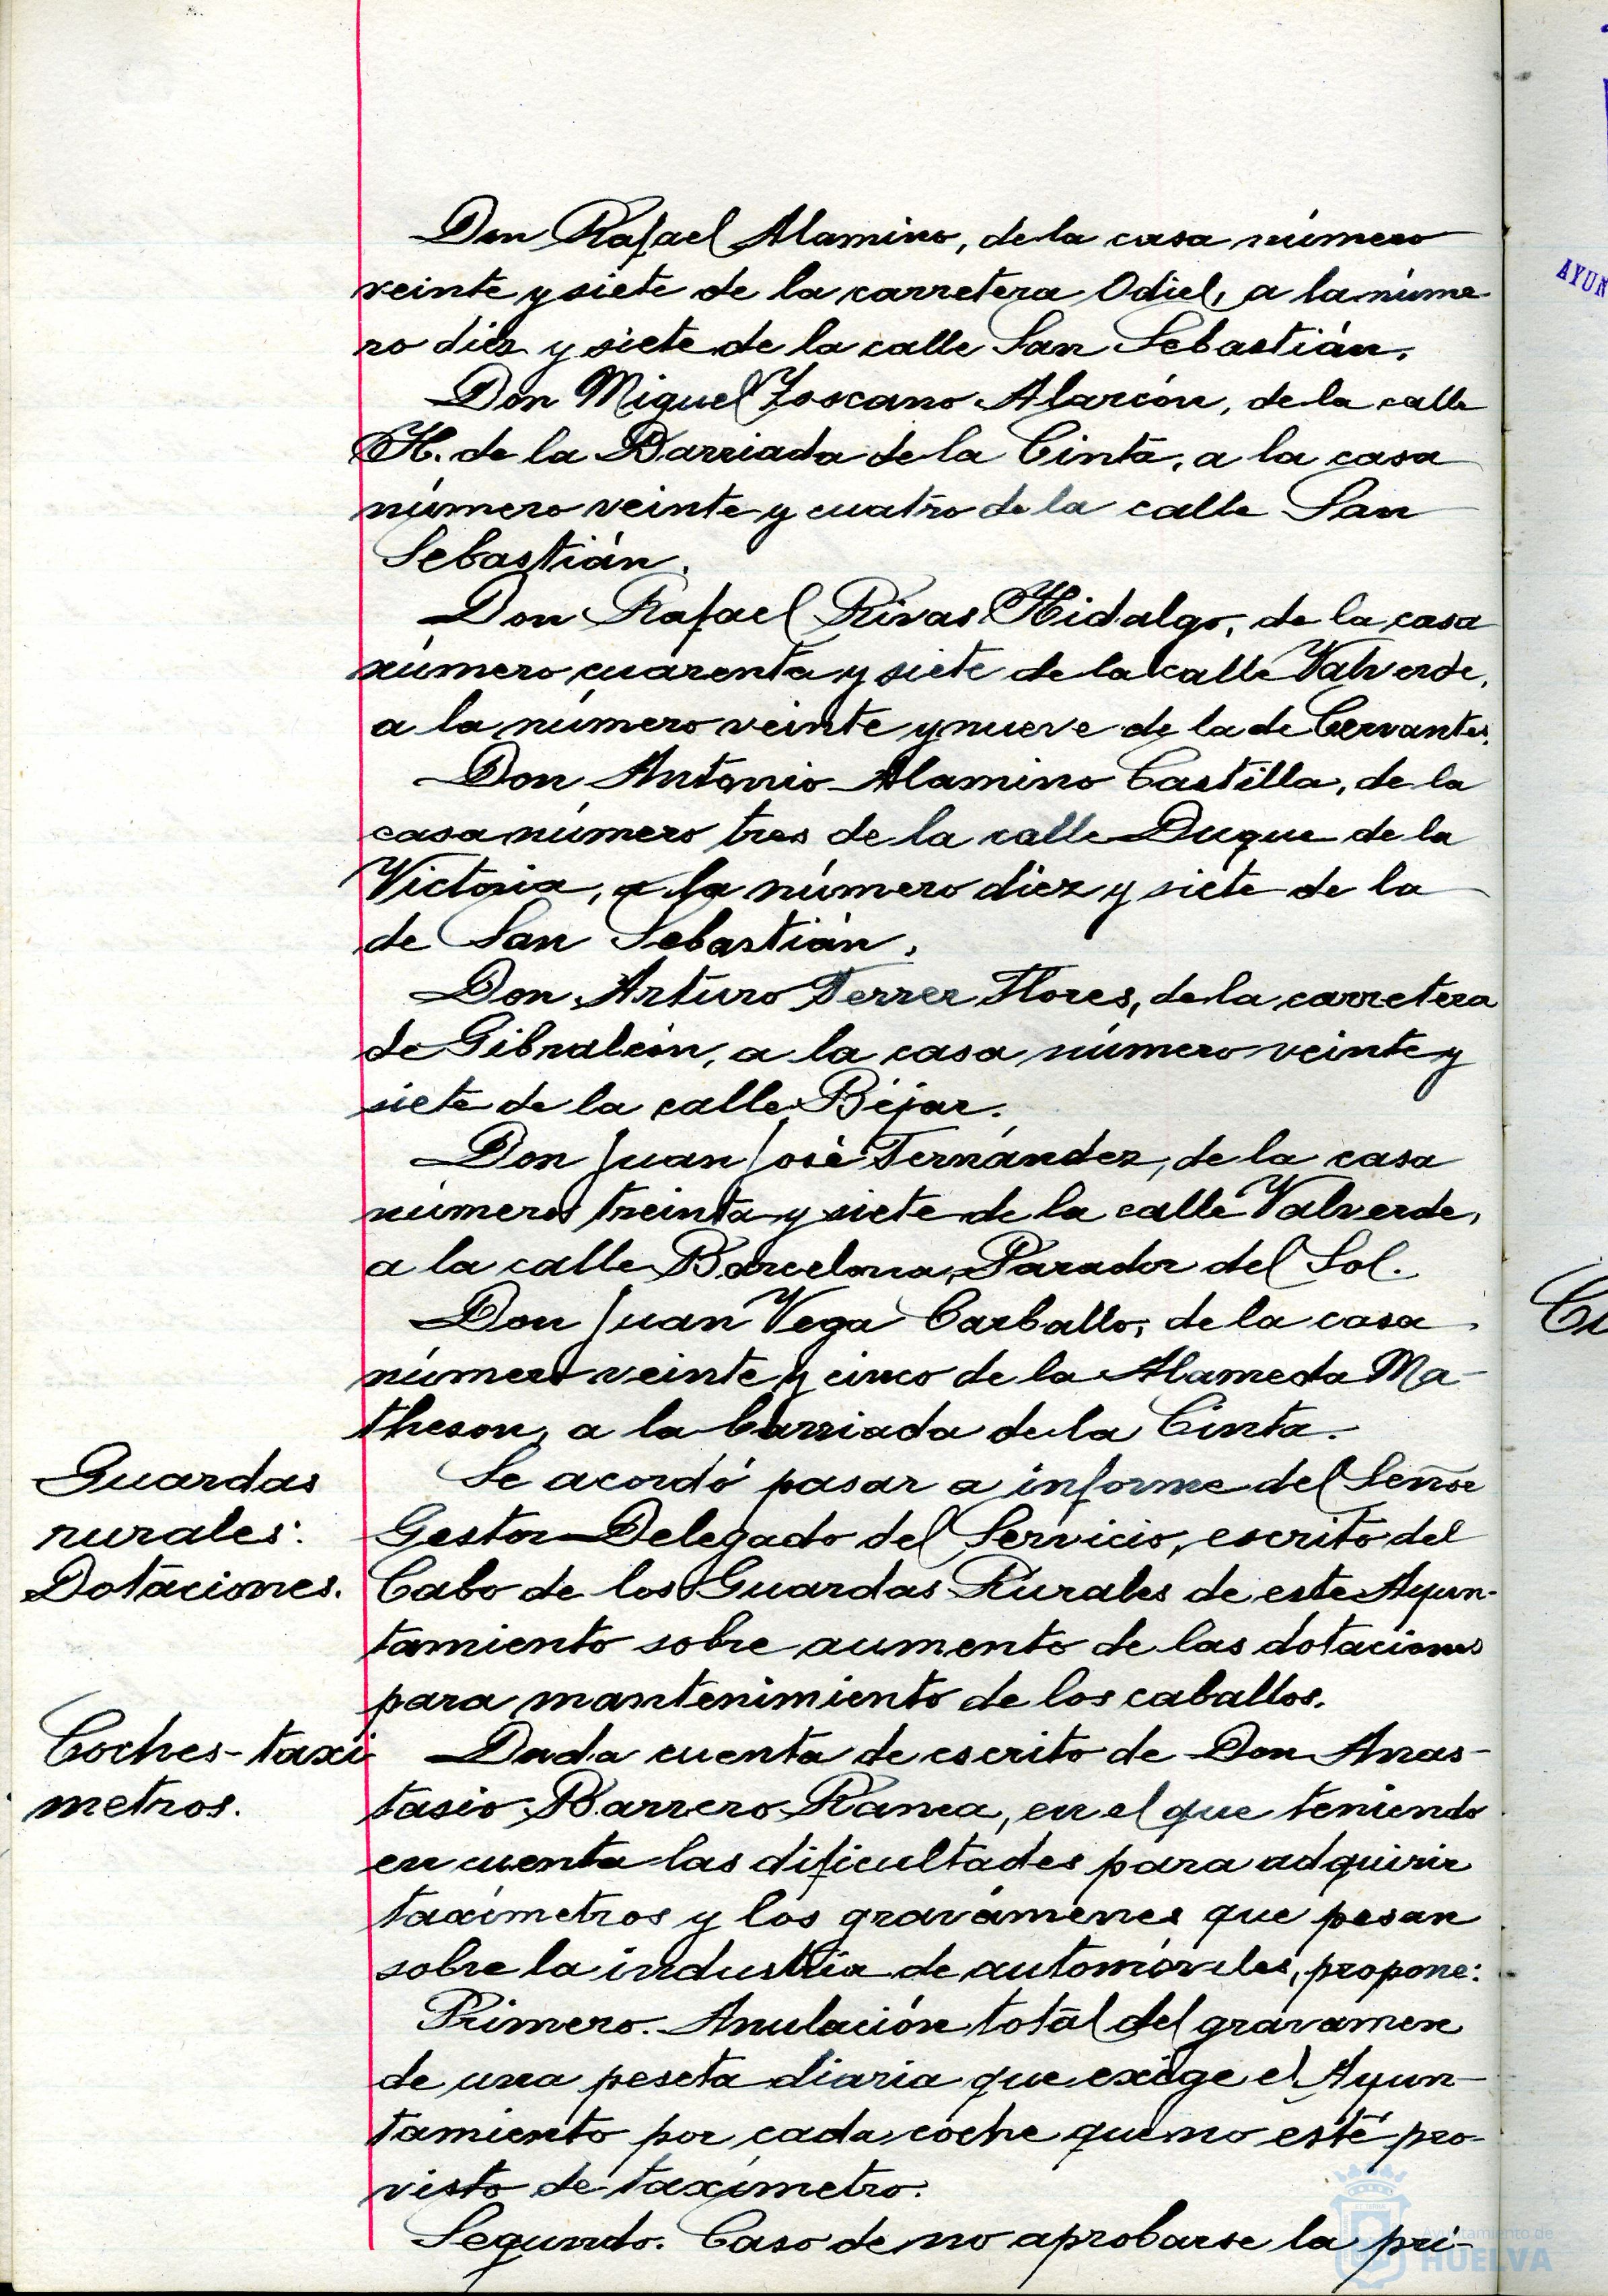 Don Rafael Alamino, de la casa número
veinte y siete de la carretera Odiel, a la núme-
ro diez y siete de la calle San Sebastián.
Don Miguel Toscano Alarcón, de la calle
H. de la Barriada de la Cinta, a la casa
número veinte y cuatro de la calle San
Sebastián.
Don Rafael Rivas Hidalgo, de la casa
número cuarenta y siete de la calle Valverde,
a la número veinte y nueve de la de Cervantes.
Don Antonio Alamino Castilla, de la
casa número tres de la calle Duque de la
Victoria, a la número diez y siete de la
de San Sebastián.
Don Arturo Ferrer Flores, de la carretera
de Gibraleón, a la casa número veinte y
siete de la calle Béjar.
Don Juan José Fernández, de la casa
número treinta y siete de la calle Valverde,
a la calle Barcelona, Parador del Sol.
Don Juan Vega Carballo, de la casa
número veinte y cinco de la Alameda Ma-
theson, a la barriada de la Cinta.
Guardas
rurales.
Dotaciones.
Se acordó pasar a informe del Señor
Gestor Delegado del Servicio, escrito del
Cabo de los Guardas Rurales de este Ayun-
tamiento sobre aumento de las dotaciones
para mantenimiento de los caballos.
Coches-taxi
metros.
Dada cuenta de escrito de Don Anas-
tasio Barrero Ranea, en el que teniendo
en cuenta las dificultades para adquirir
taxímetros y los gravámenes que pesan
sobre la industria de automóviles, propone:
Primero. Anulación total del gravamen
de una peseta diaria que exige el Ayun-
tamiento por cada coche que no esté pro-
visto de taxímetro.
Segundo. Caso de no aprobarse la pri-
AYUN
Ayuntamiento de
HUELVA